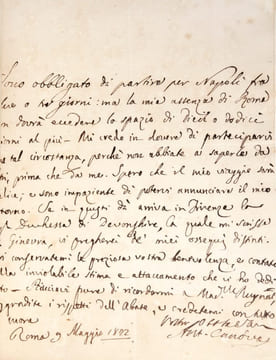 Sono obbligato di partire per Napoli fra
due o tre giorni: ma la mia assenza di Roma
non dovrà eccedere lo spazio di dieci o dodici
giorni al più - Mi credo in dovere di parteciparvi
tal circostanza, perchè non abbiate a saperlo da
altri, prima che da me. Spero che il mio viaggio sarà
e sono impaziente di potervi annunciare il mio
ritorno. Se in questi dì arriva in Firenze la
Duchessa di Devonshire, la quale mi scrisse
Ginevra, vi pregherei de' miei ossequi distinti.
conservatemi la preziosa vostra benevolenza, e contate
inviolabile stima e attaccamento che vi ho dedi-
cato - Piacciavi pure di ricordarmi a Mad.
gradite i rispetti dell'Abate, e credetemi con tutto
cuore
Roma 9 Maggio 1822
Ant. Canova